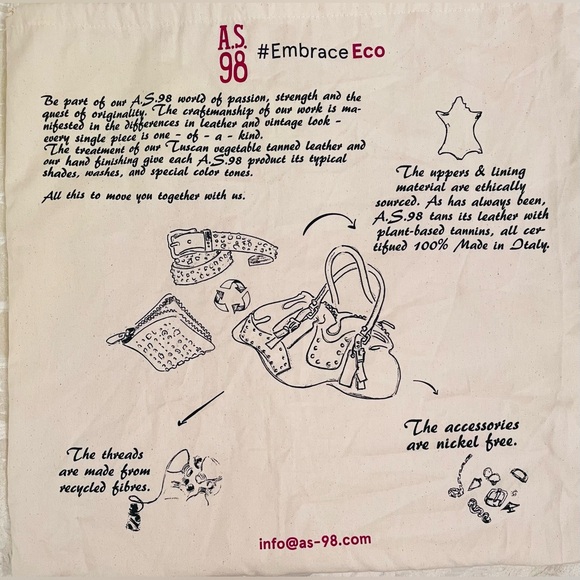 A.S.
98
#EmbraceEco
Be part of our A.S.98 world of passion, strength and the
quest of originality. The craftmanship of our work is ma-
nifested in the differences in leather and vintage look -
every single piece is one - of - a - kind.
The treatment of our Tuscan vegetable tanned leather and
our hand finishing give each A.S.98 product its typical
shades, washes, and special color tones.
All this to move you together with us.
The uppers & lining
material are ethically
sourced. As has always been,
A.S.98 tans its leather with
plant-based tannins, all cer-
tifued 100% Made in Italy.
The accessories
are nickel free.
The threads
are made from
recycled fibres.
info@as-98.com